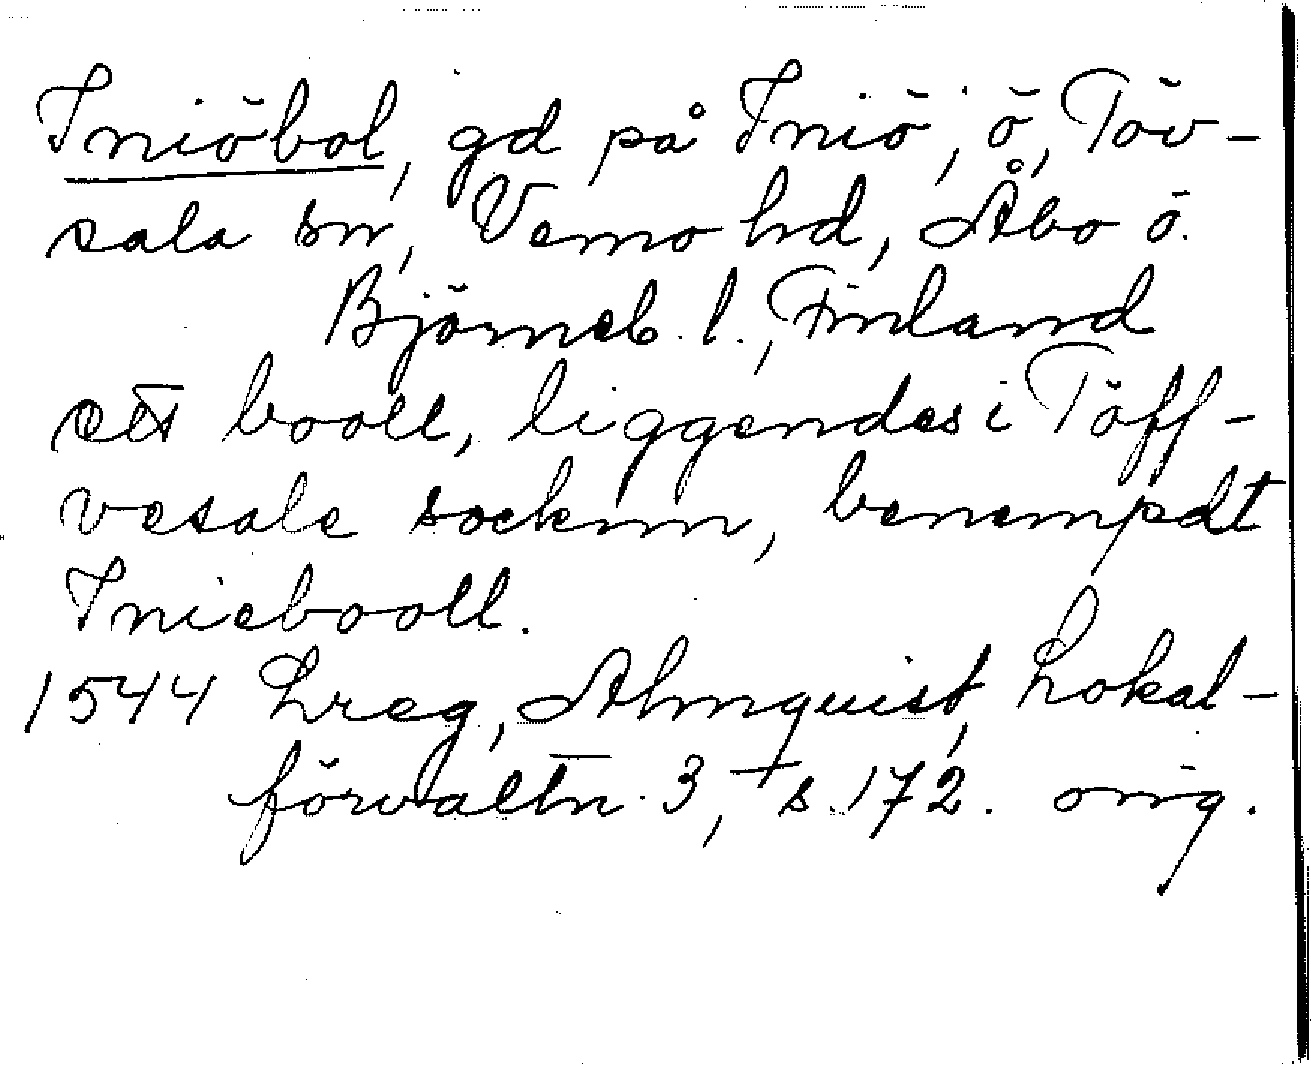 Iniöbol, gd på Iniö, ö, Töv-
sala sn, Vemo hd, Åbo ö.
Björneb. l., Finland
ett booll, liggendes i Töff-
vesale socknn, benempdt
Iniebooll.
1544 Lreg, Almquist, Lokal-
förvaltn. 3, s. 172. orig.